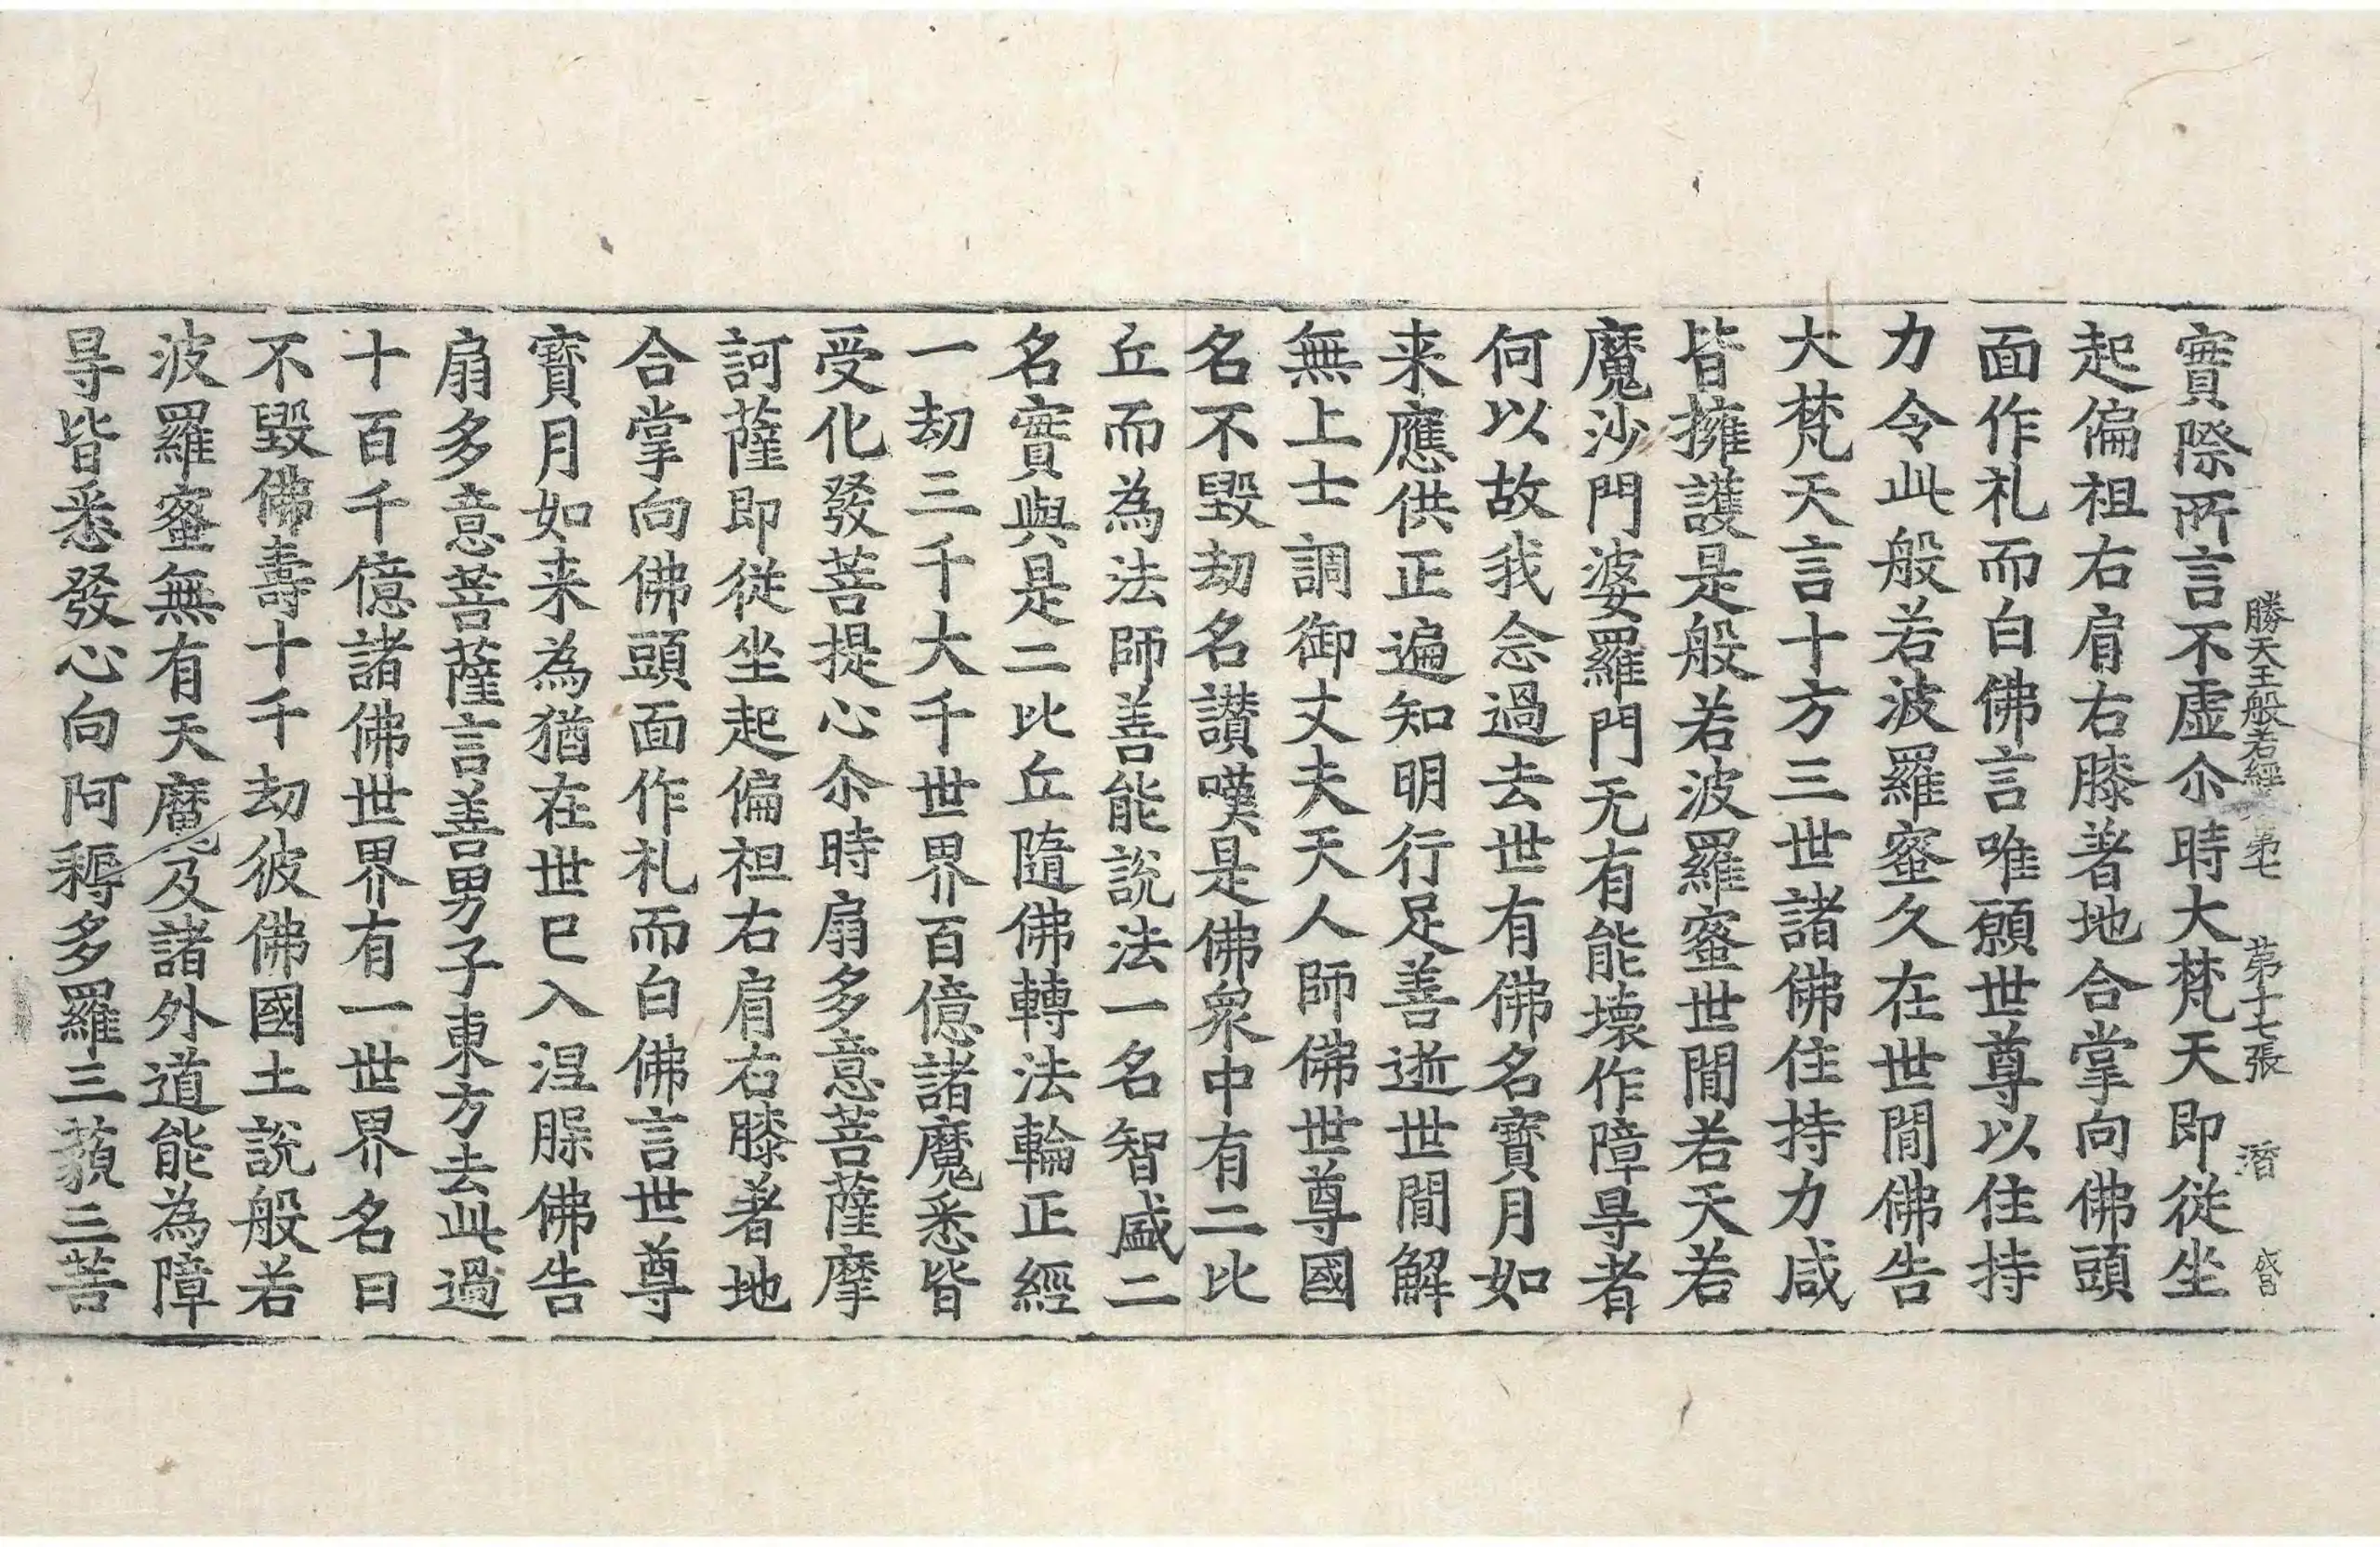 勝天王般若經 第七 第十七張 潛 㫺
實際所言不虛尒時大梵天即從坐
起偏袒右肩右膝著地合掌向佛頭
面作礼而白佛言唯願世尊以住持
力令此般若波羅蜜久在世閒佛告
大梵天言十方三世諸佛住持力咸
皆擁護是般若波羅蜜世閒若天若
魔沙門婆羅門无有能壞作障㝵者
何以故我念過去世有佛名寶月如
来應供正遍知明行足善逝世閒解
無上士調御丈夫天人師佛世尊國
名不毀劫名讃嘆是佛衆中有二比
丘而為法師善能說法一名智盛二
名實與是二比丘隨佛轉法輪正經
一劫三千大千世界百億諸魔悉皆
受化發菩提心尒時扇多意菩薩摩
訶薩即從坐起偏袒右肩右膝著地
合掌向佛頭面作礼而白佛言世尊
寶月如来為猶在世已入涅槃佛告
扇多意菩薩言善男子東方去此過
十百千億諸佛世界有一世界名曰
不毀佛壽十千劫彼佛國土說般若
波羅蜜無有天魔及諸外道能為障
㝵皆悉發心向阿耨多羅三藐三菩